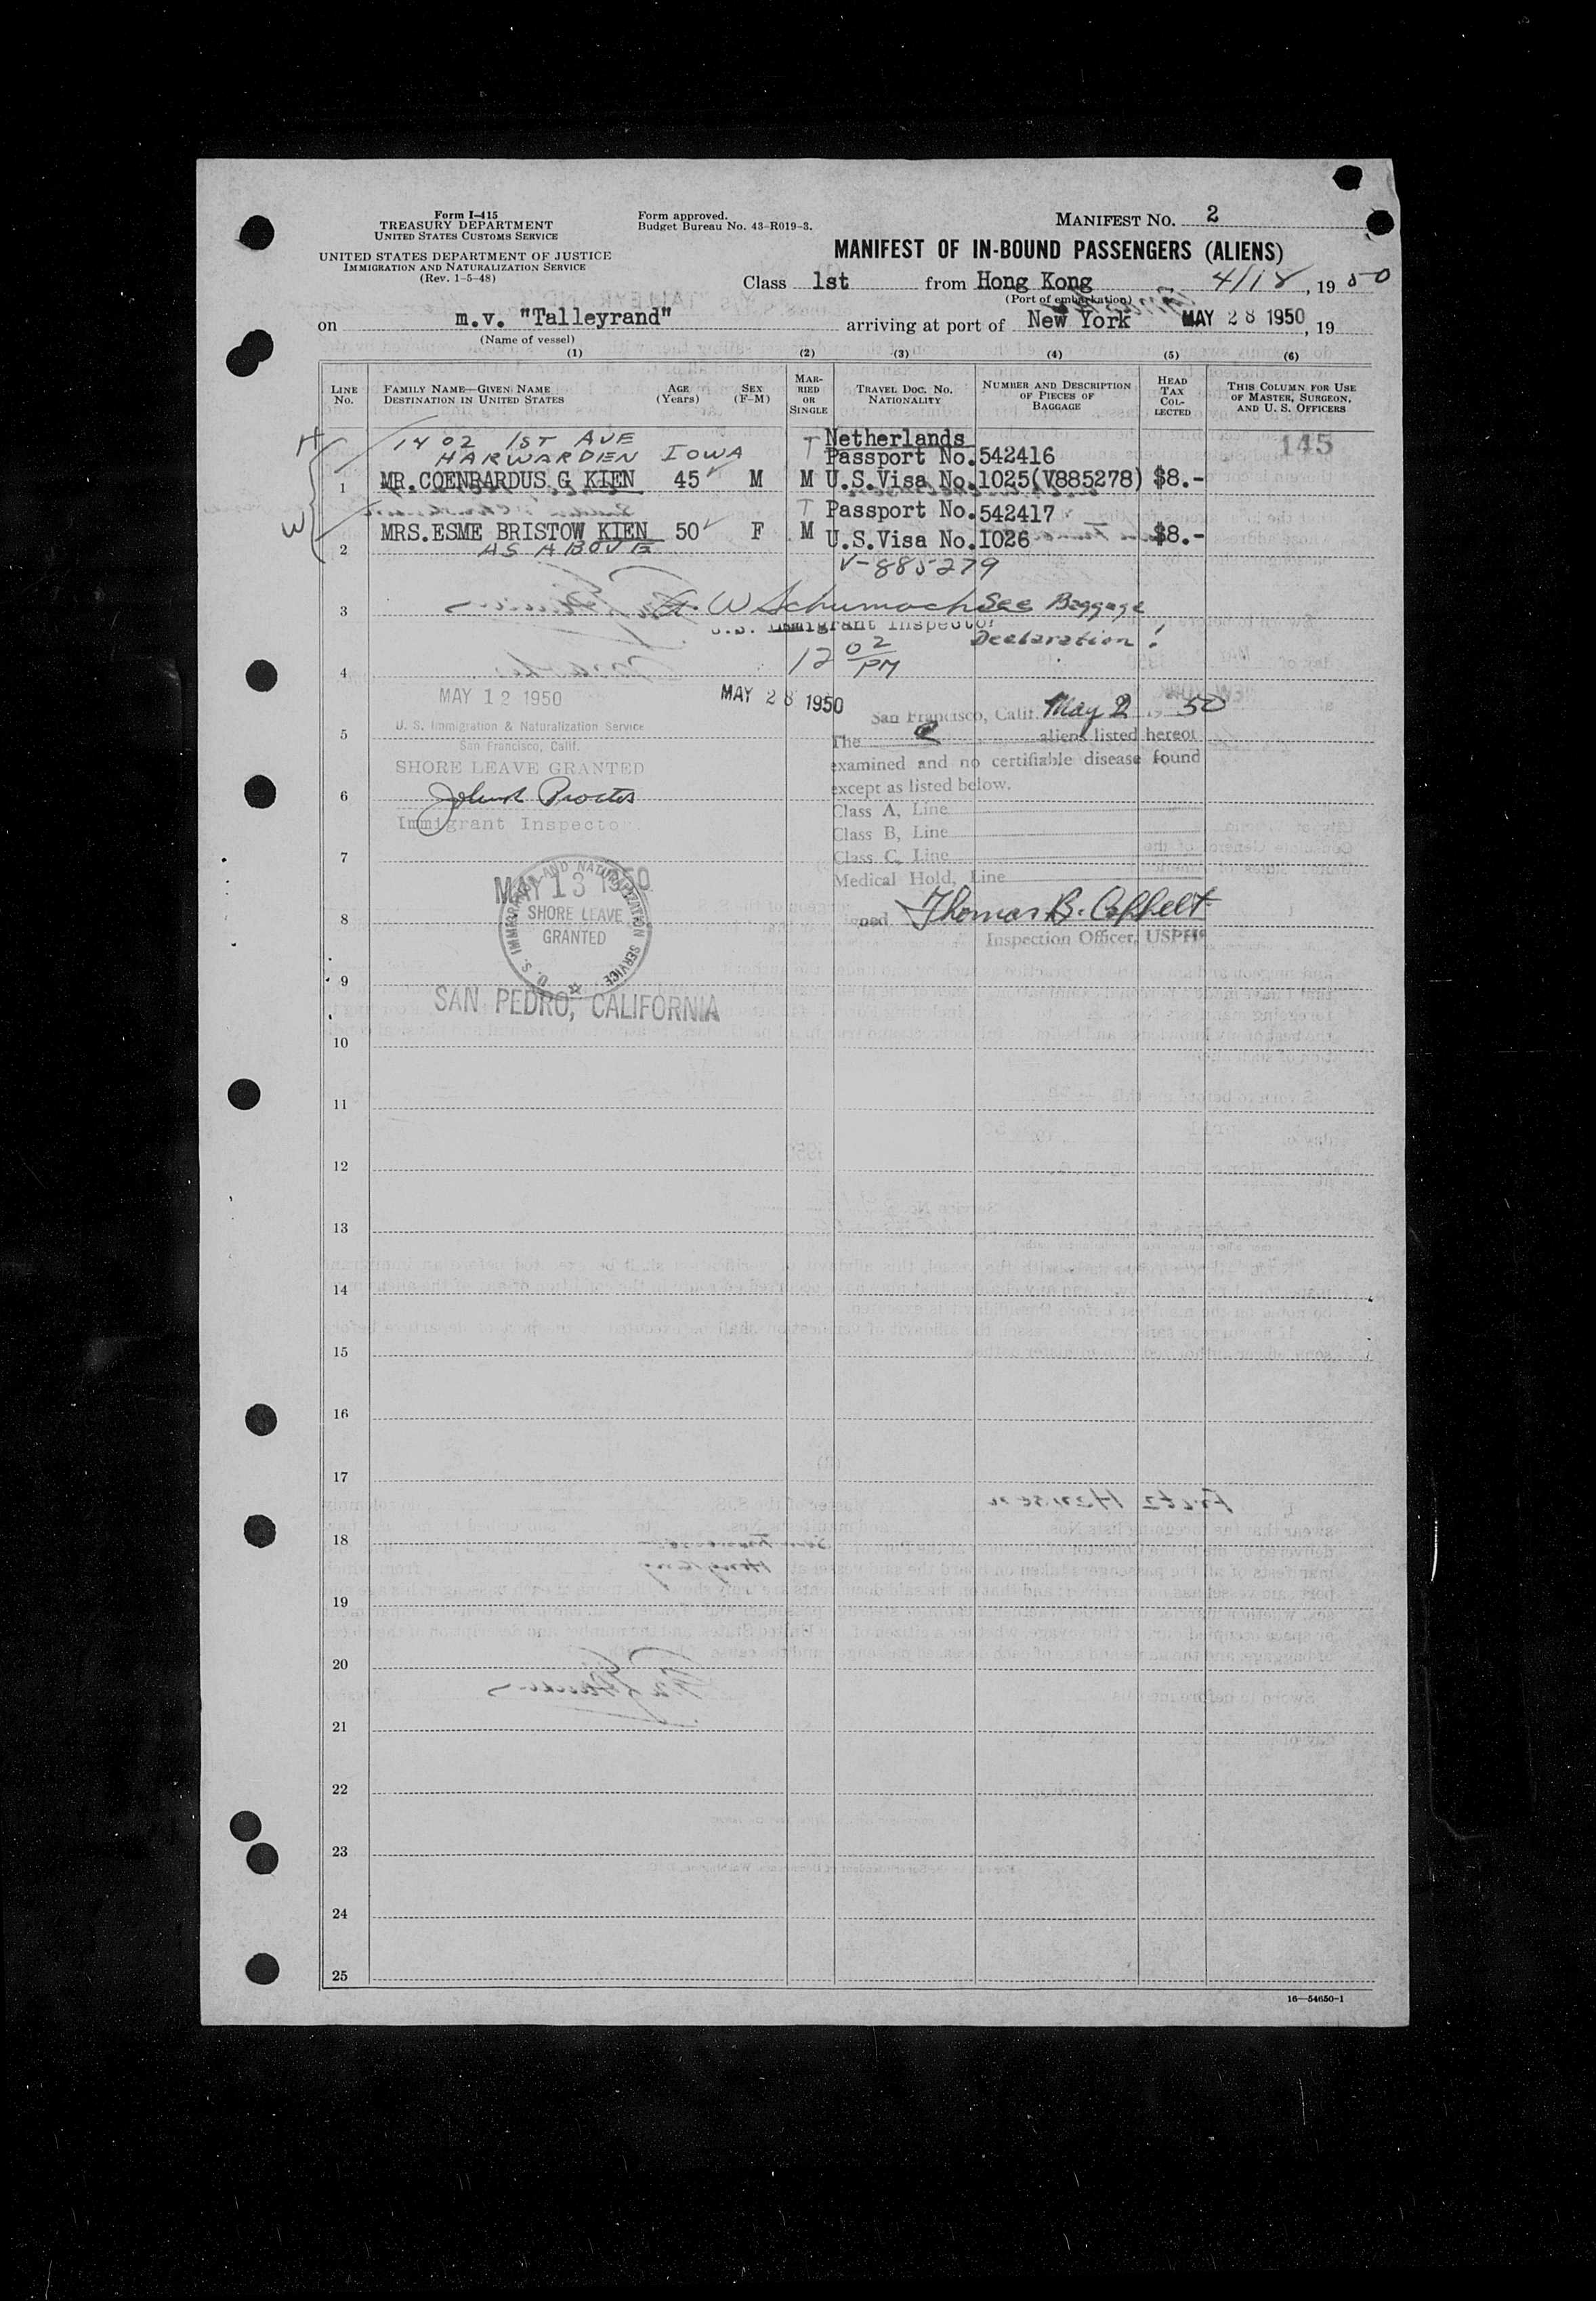 Form I-415
TREASURY DEPARTMENT
UNITED STATES CUSTOMS SERVICE
UNITED STATES DEPARTMENT OF JUSTICE
IMMIGRATION AND NATURALIZATION SERVICE
(Rev. 1-5-48)
Form approved.
Budget Bureau No. 43-R019-3.
MANIFEST NO. 2
MANIFEST OF IN-BOUND PASSENGERS (ALIENS)
Class 1st from Hong Kong 4/18, 19 50
(Port of embarkation)
on m.v. "Talleyrand" arriving at port of New York MAY 28 1950, 19
(Name of vessel)
(1) (2) (3) (4) (5) (6)
LINE NO.
FAMILY NAME—GIVEN NAME
DESTINATION IN UNITED STATES
AGE (Years)
SEX (F-M)
MARRIED OR SINGLE
TRAVEL DOC. NO.
NATIONALITY
NUMBER AND DESCRIPTION OF PIECES OF BAGGAGE
HEAD TAX COLLECTED
THIS COLUMN FOR USE OF MASTER, SURGEON, AND U. S. OFFICERS
145
H
1402 1ST AVE
HARWARDEN IOWA
T Netherlands
Passport No.542416
1 MR.COENRARDUS G KIEN 45 M M U.S.Visa No.1025(V885278) $8.-
W
T Passport No.542417
2 MRS.ESME BRISTOW KIEN 50 F M U.S.Visa No.1026 $8.-
AS ABOVE
V-885279
3 W Schumach See Baggage
U.S. Immigrant Inspector
Declaration!
12 02 PM
4
MAY 12 1950
MAY 28 1950
U. S. Immigration & Naturalization Service
San Francisco, Calif.
SHORE LEAVE GRANTED
Immigrant Inspector
San Francisco, Calif. May 2 1950
The aliens listed hereon
examined and no certifiable disease found
except as listed below.
Class A, Line
Class B, Line
Class C, Line
Medical Hold, Line
Thomas B.
Inspection Officer, USPHS
5
6
7
MAY 13 1950
U. S. IMMIGRATION AND NATURALIZATION SERVICE
SHORE LEAVE
GRANTED
SAN PEDRO, CALIFORNIA
8
9
10
11
12
13
14
15
16
17
18
19
20
21
22
23
24
25
16—54650-1